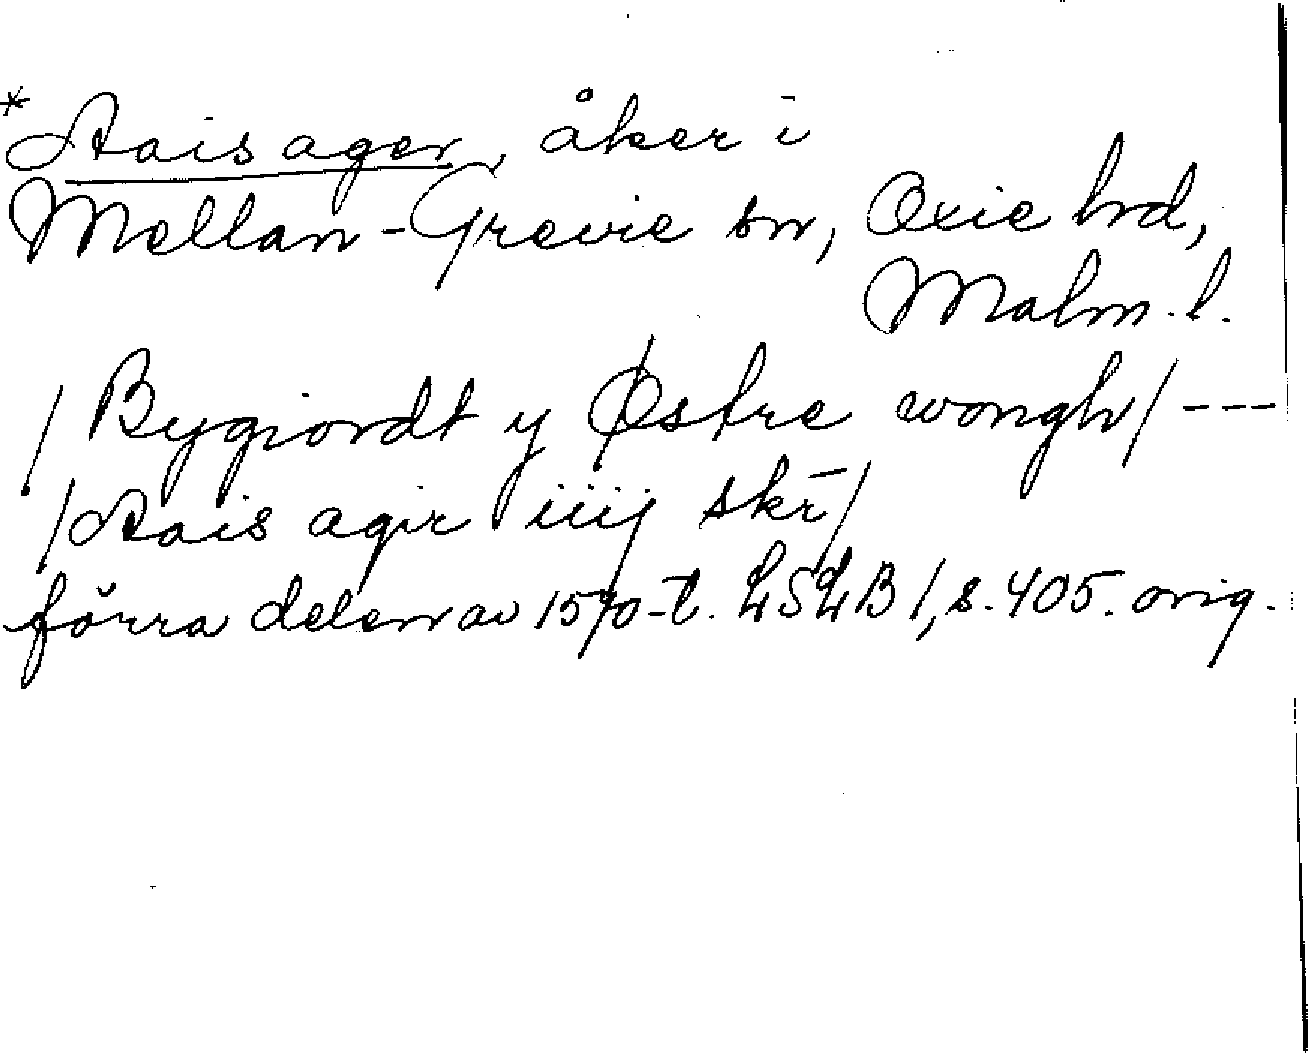 *Stais ager, åker i
Mellan-Grevie sn, Oxie hd,
Malm. l.
/Bygiordt y Østre wongh/ ---
/Stais agir iiij skr/
förra delen av 1570-t. LSLB 1, s. 405. orig.